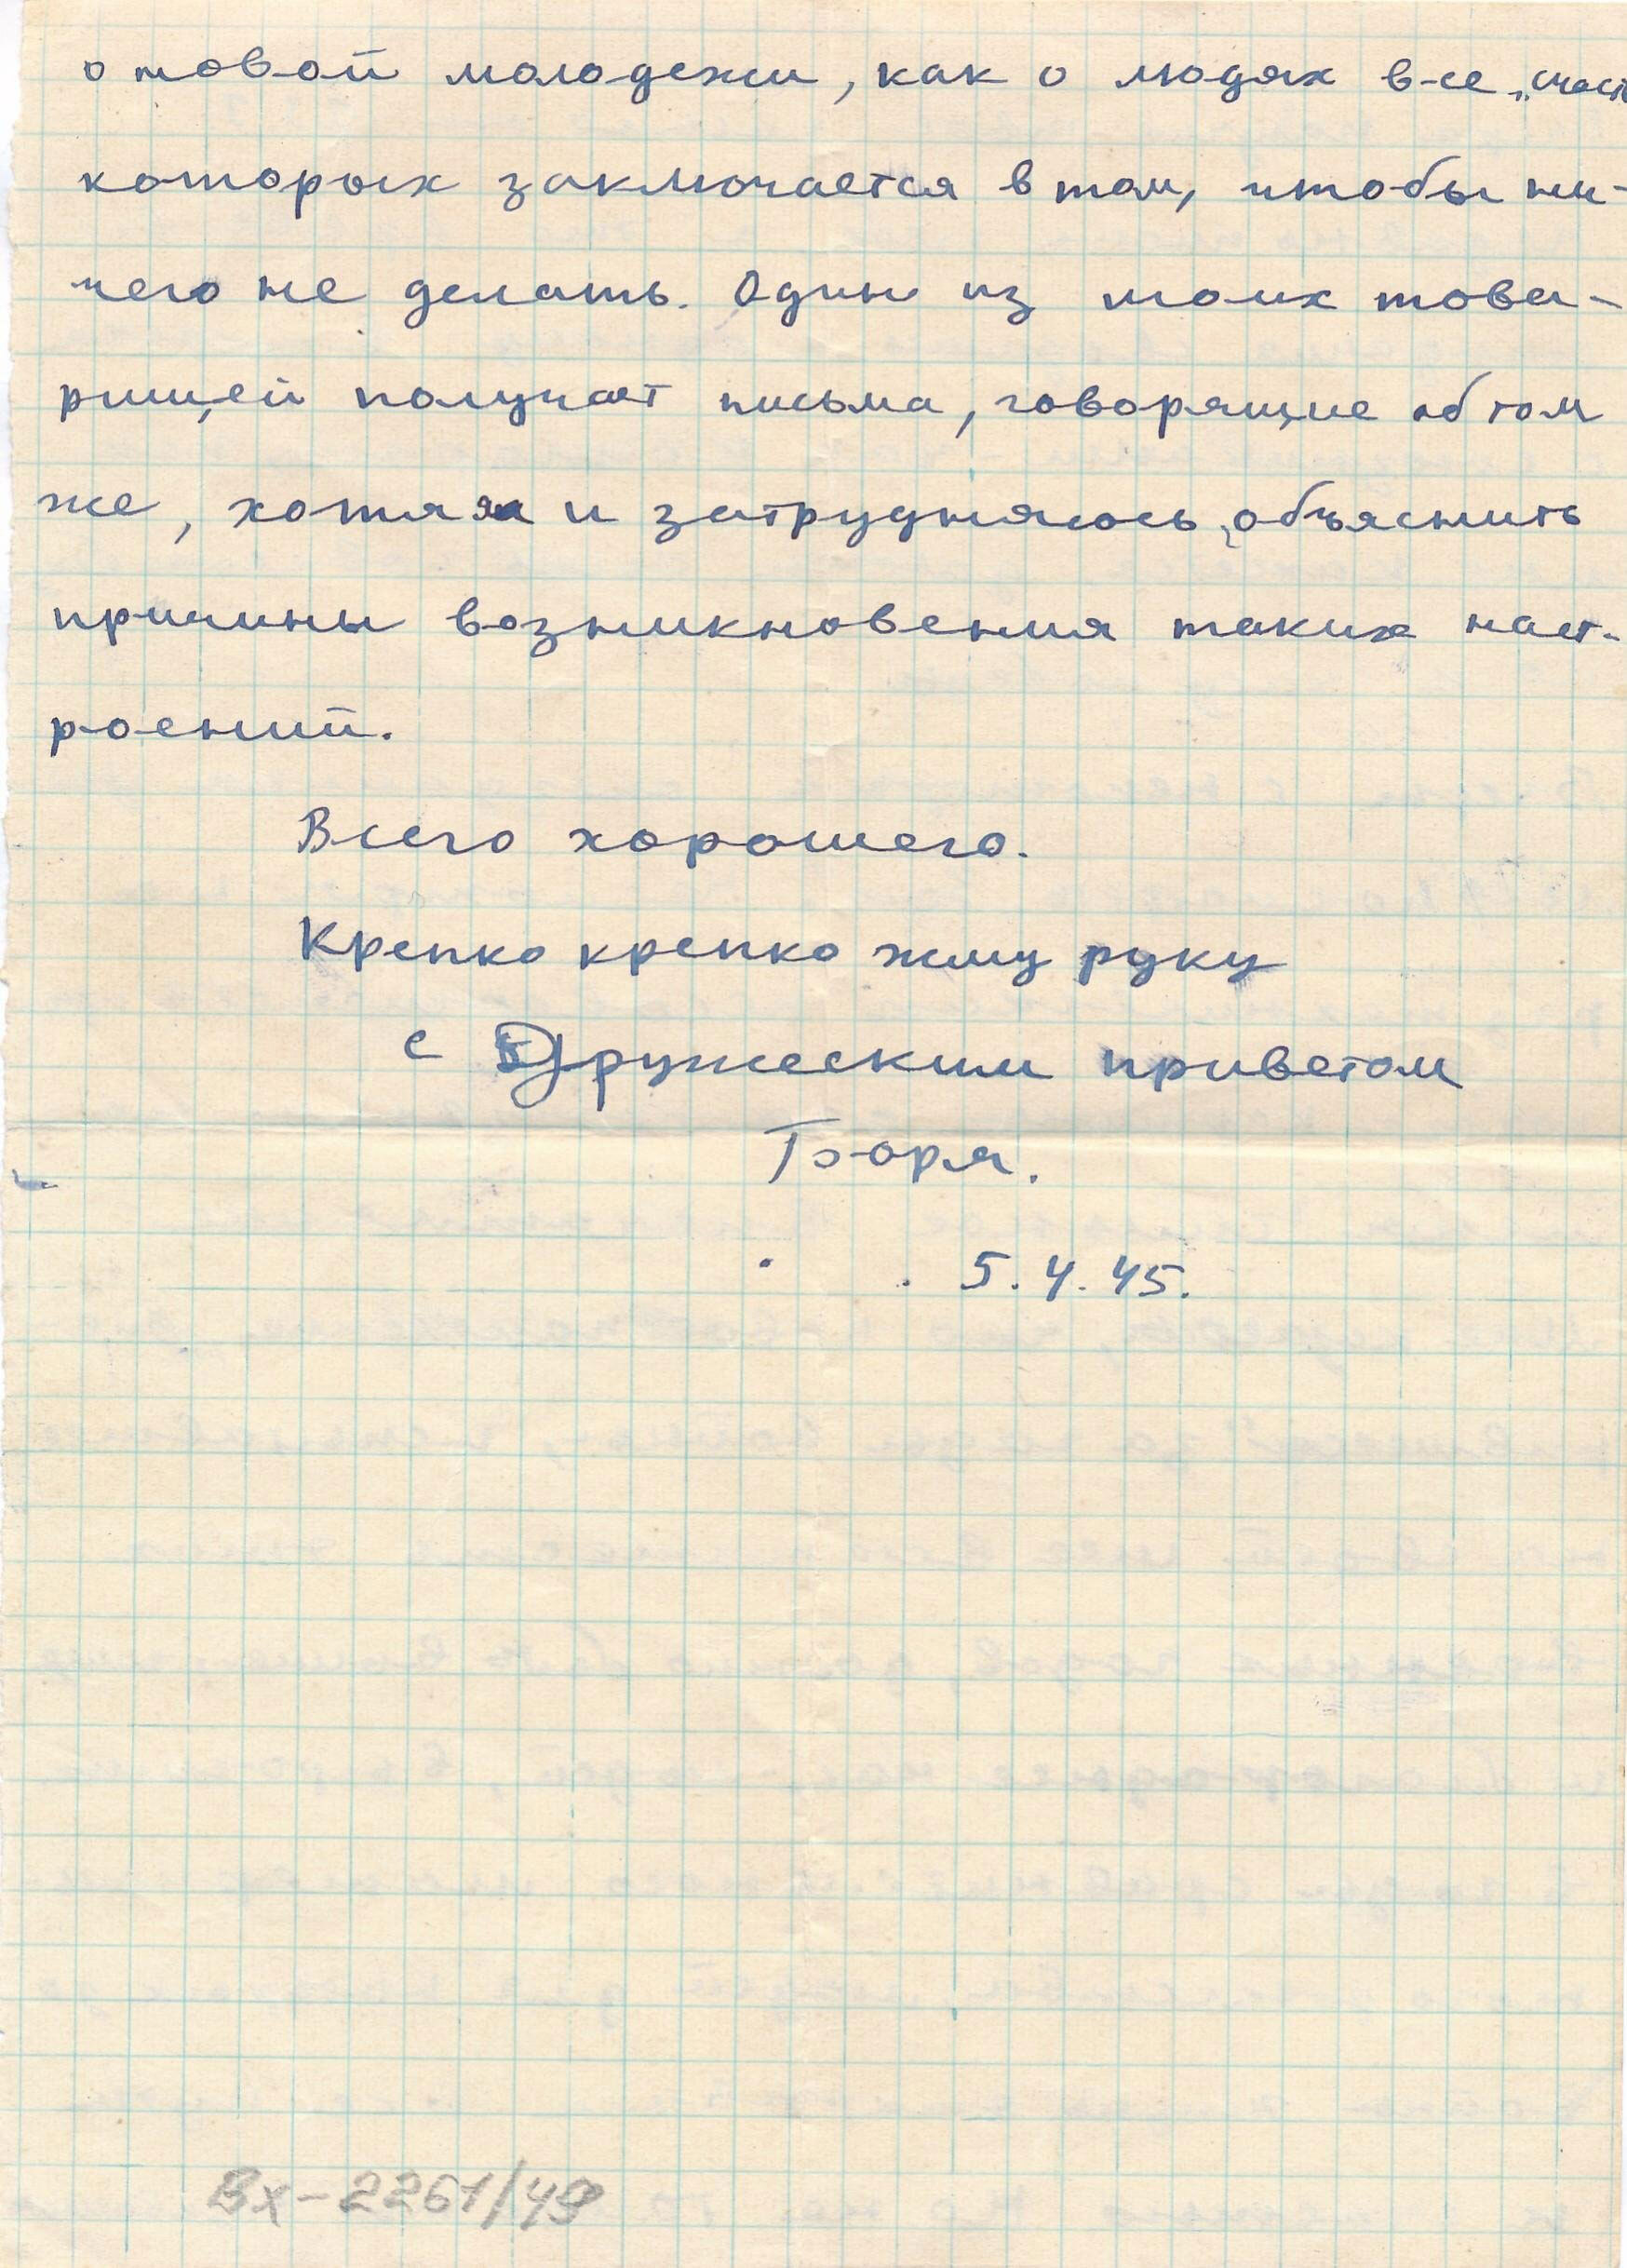 о новой молодежи, как о людях все „счаст
которых заключается в том, чтобы ни-
чего не делать. Один из моих това-
рищей получает письма, говорящие об том
же, хотя я и затрудняюсь объяснить
причины возникновения таких наст-
роений.
Всего хорошего.
Крепко крепко жму руку
с Дружеским приветом
Боря.
5.4.45.
Вх-2261/49